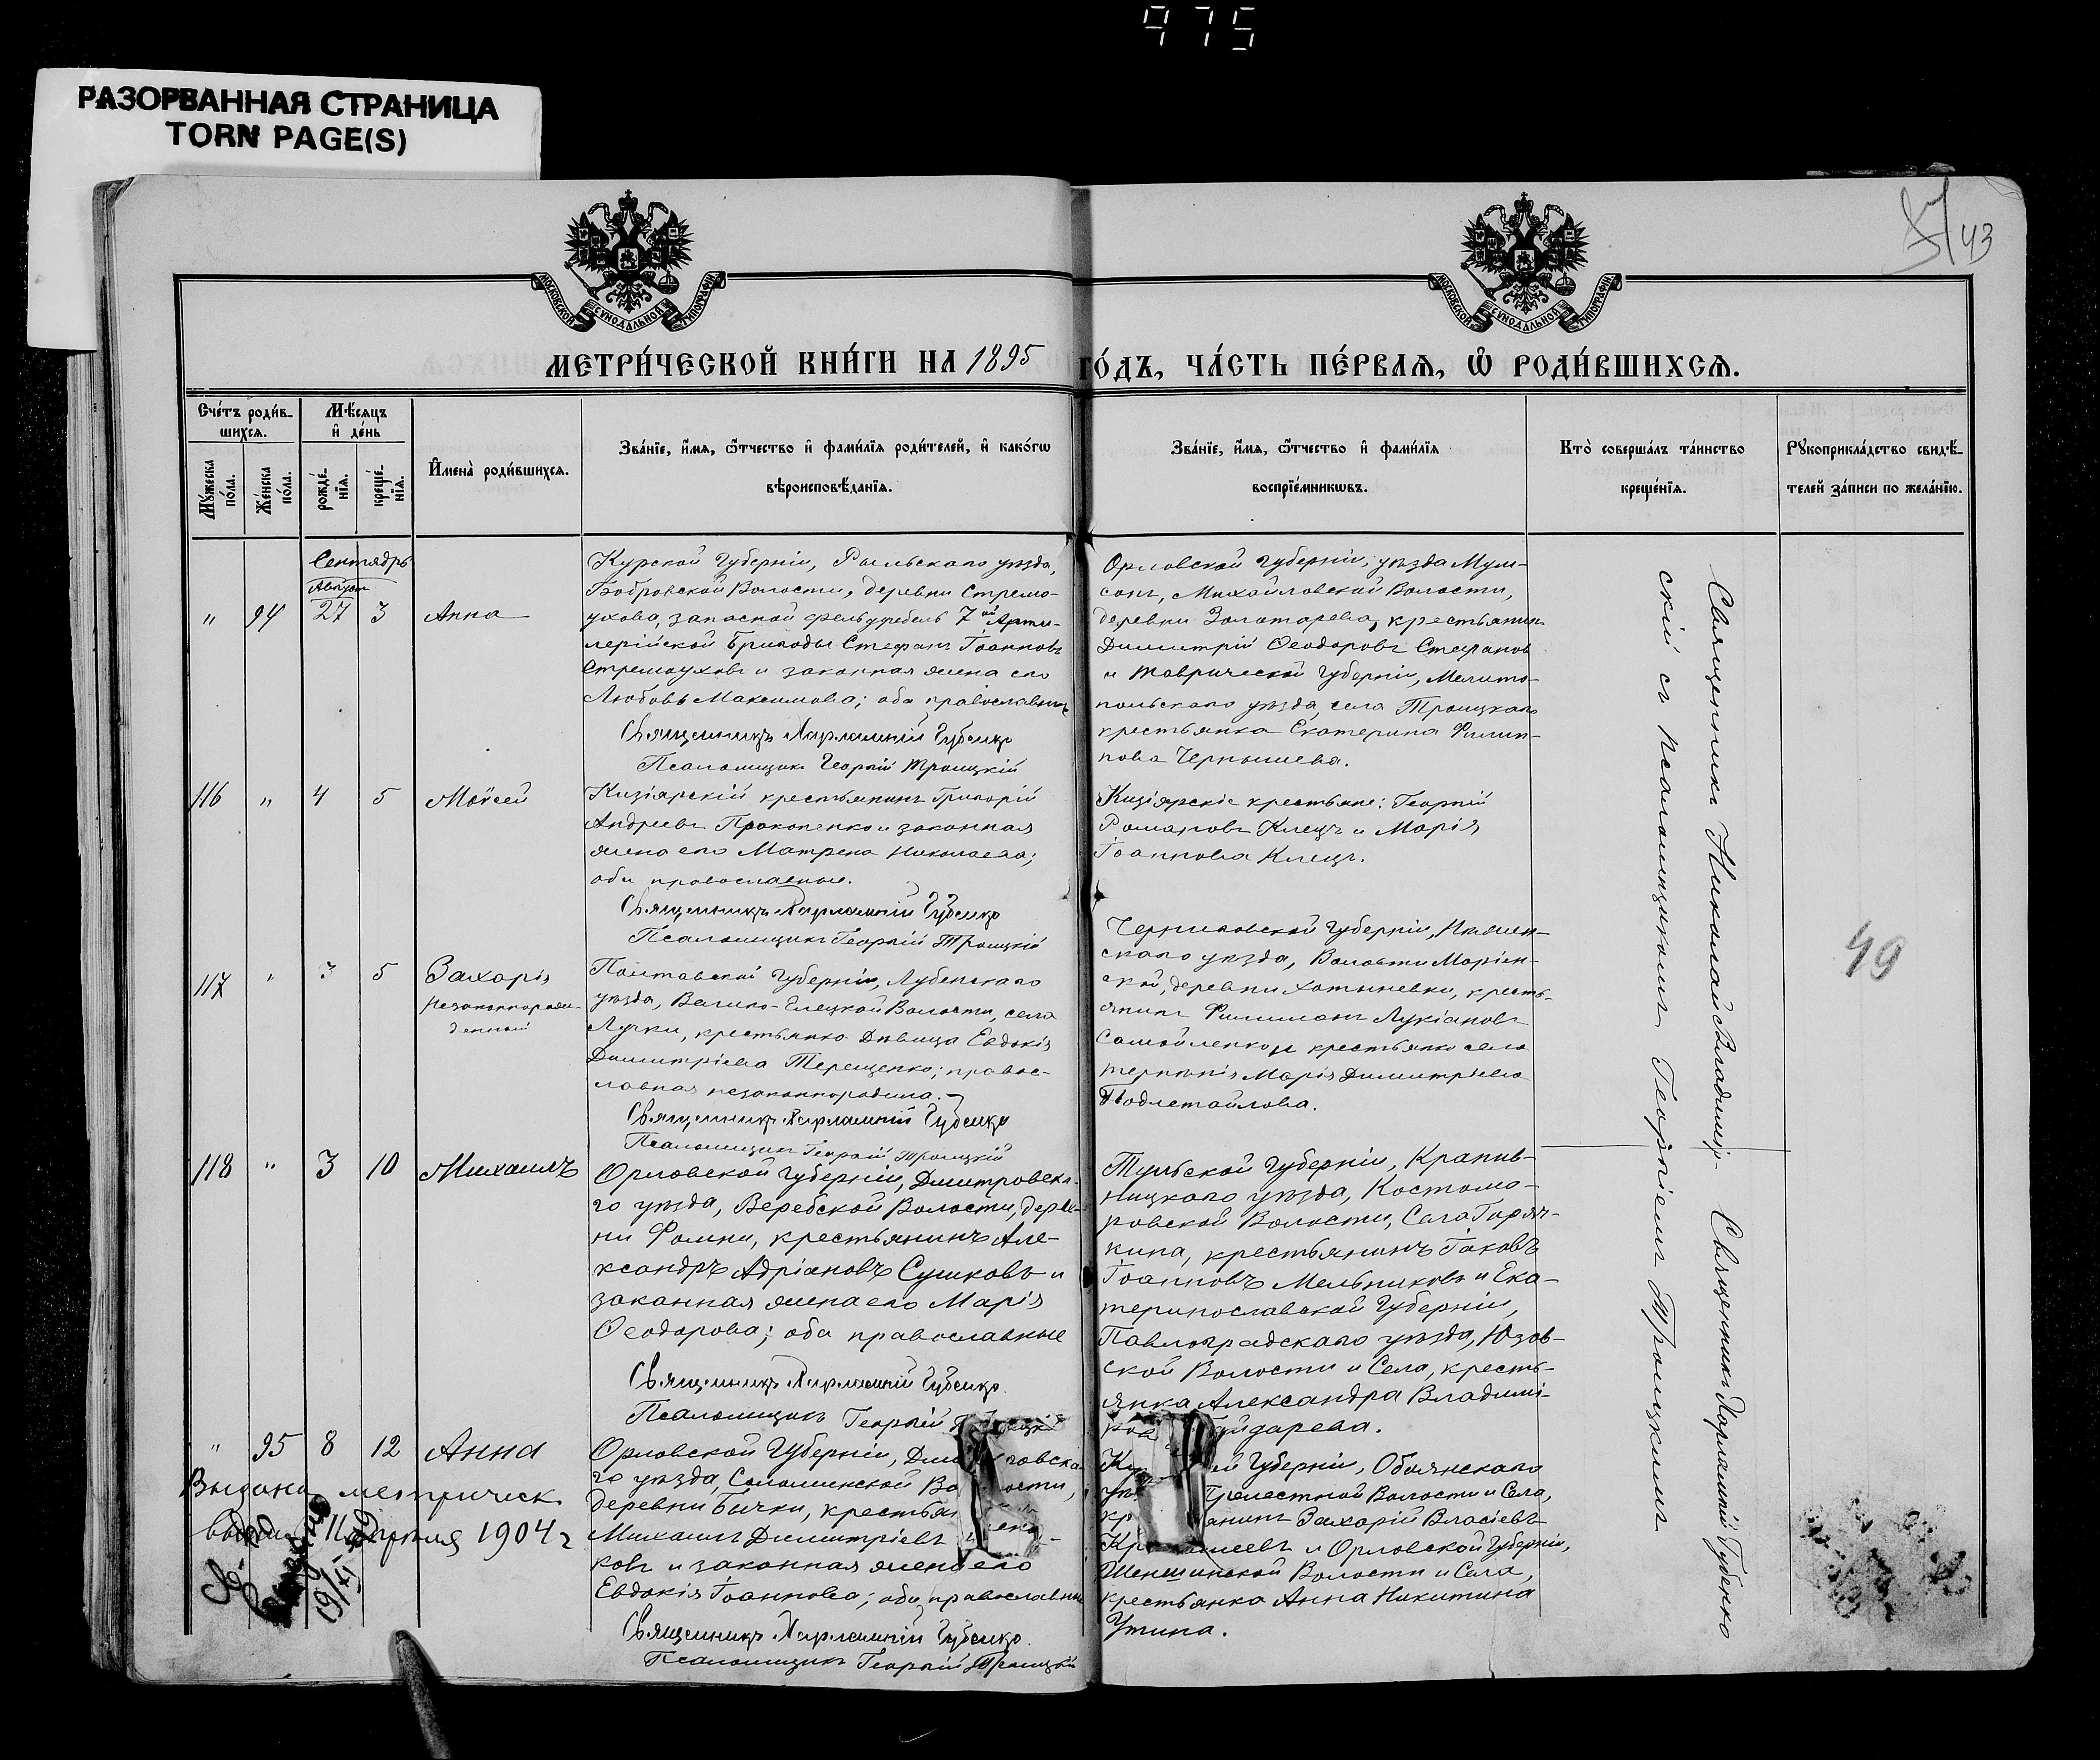 975
РАЗОРВАННАЯ СТРАНИЦА
TORN PAGE(S)
43
МОСКОВСКОЙ СѴНОДАЛЬНОЙ ТИПОГРАФІИ
МОСКОВСКОЙ СѴНОДАЛЬНОЙ ТИПОГРАФІИ
МЕТРИ́ЧЕСКОЙ КНИ́ГИ НА 1895 ГО́ДЪ, ЧА́СТЬ ПЕ́РВАѦ, Ѡ҆ РОДИ́ВШИХСѦ.
Сче́тъ роди́в-
шихсѧ.
Мꙋ́жеска по́ла.
Же́нска по́ла.
Мѣ́сѧцъ
и҆ де́нь
рожде́-
нїѧ.
креще́-
нїѧ.
И҆мена̀ роди́вшихсѧ.
Зва́нїе, и҆́мѧ, ѻ҆́тчество и҆ фами́лїѧ роди́телей, и҆ како́гѡ
вѣроисповѣ́данїѧ.
Зва́нїе, и҆́мѧ, ѻ҆́тчество и҆ фами́лїѧ
воспрїе́мникѡвъ.
Кто̀ соверша́лъ та́инство
креще́нїѧ.
Рꙋкоприкла́дство свидѣ́-
телей за́писи по жела́нїю.
Сентябрь
Августъ
" 94 27 3 Анна
Курской Губерніи, Рыльскаго уѣзда,
Бобровской Волости, деревни Стремо-
ухова, запасной фельдфебель 7ой Арти-
лерійской Бригады Стефанъ Іоанновъ
Стремоуховъ и законная жена его
Любовь Максимова; оба православные
Священникъ Харлампій Губенко
Псаломщикъ Георгій Троицкій
Орловской губерніи, уѣзда
Михайловской Волости,
деревни Золотарева, крестьянин
Димитрій Ѳеодоровъ Стефанов
и Таврической Губерніи, Мелито-
польскаго уѣзда, села Троицкаго
крестьянка Екатерина Филип-
пова Чернышева.
116 " 4 5 Моѵсей
Кизіярскій крестьянинъ Григорій
Андреевъ Прокопенко и законная
жена его Матрена Николаева;
оба православные.
Священникъ Харлампій Губенко
Псаломщикъ Георгій Троицкій
Кизіярскіе крестьяне: Георгій
Романовъ Клецъ и Марія
Іоаннова Клецъ.
117 " 3 5 Захарія
незаконнорож-
денный
Полтавской Губерніи, Лубенскаго
уѣзда, Волости, села
Лучки, крестьянка Дѣвица Евдокія
Димитріева Терещенко; правос-
лавная незаконнородила.
Священникъ Харлампій Губенко
Псаломщикъ Георгій Троицкій
Черниговской Губерніи, Нѣжин-
скаго уѣзда, Волости Маріин-
ской, деревни Хатыневки, кресть-
янинъ Филимонъ Лукіановъ
Самойленко и крестьянка села
Терпѣнія Марія Димитріева
Подлетайлова.
49
118 " 3 10 Михаилъ
Орловской Губерніи, Дмитровска-
го уѣзда, Веребской Волости, дерев-
ни Фомки, крестьянинъ Але-
ксандръ Адріановъ Сушковъ и
законная жена его Марія
Ѳеодорова; оба православные
Священникъ Харлампій Губенко.
Псаломщикъ Георгій
Тульской Губерніи, Крапив-
ницкаго уѣзда, Костома-
ровской Волости, Села Горяч-
кина, крестьянинъ Іаковъ
Іоанновъ Мельниковъ и Ека-
теринославской Губерніи,
Павлоградскаго уѣзда, Юзов-
ской Волости и Села, кресть-
янка Александра Владимі-
" 95 8 12 Анна
Орловской Губерніи,
го уѣзда, Соломинской
деревни Бички,
Михаилъ Димитріевъ
ковъ и законная жена его
Евдокія Іоаннова; оба православные
Священникъ Харлампій Губенко.
Псаломщикъ Георгій Троицкій
Губерніи, Обоянскаго
Волости и Села,
Захарій Власіевъ
и Орловской Губерніи,
Шеншинской Волости и Села,
крестьянка Анна Никитина
Утина.
Выдана метрическ
11 Апрѣля 1904 г
Священникъ Николай Владимір-
скій съ псаломщикомъ Георгіемъ Троицкимъ
Священникъ Харлампій Губенко